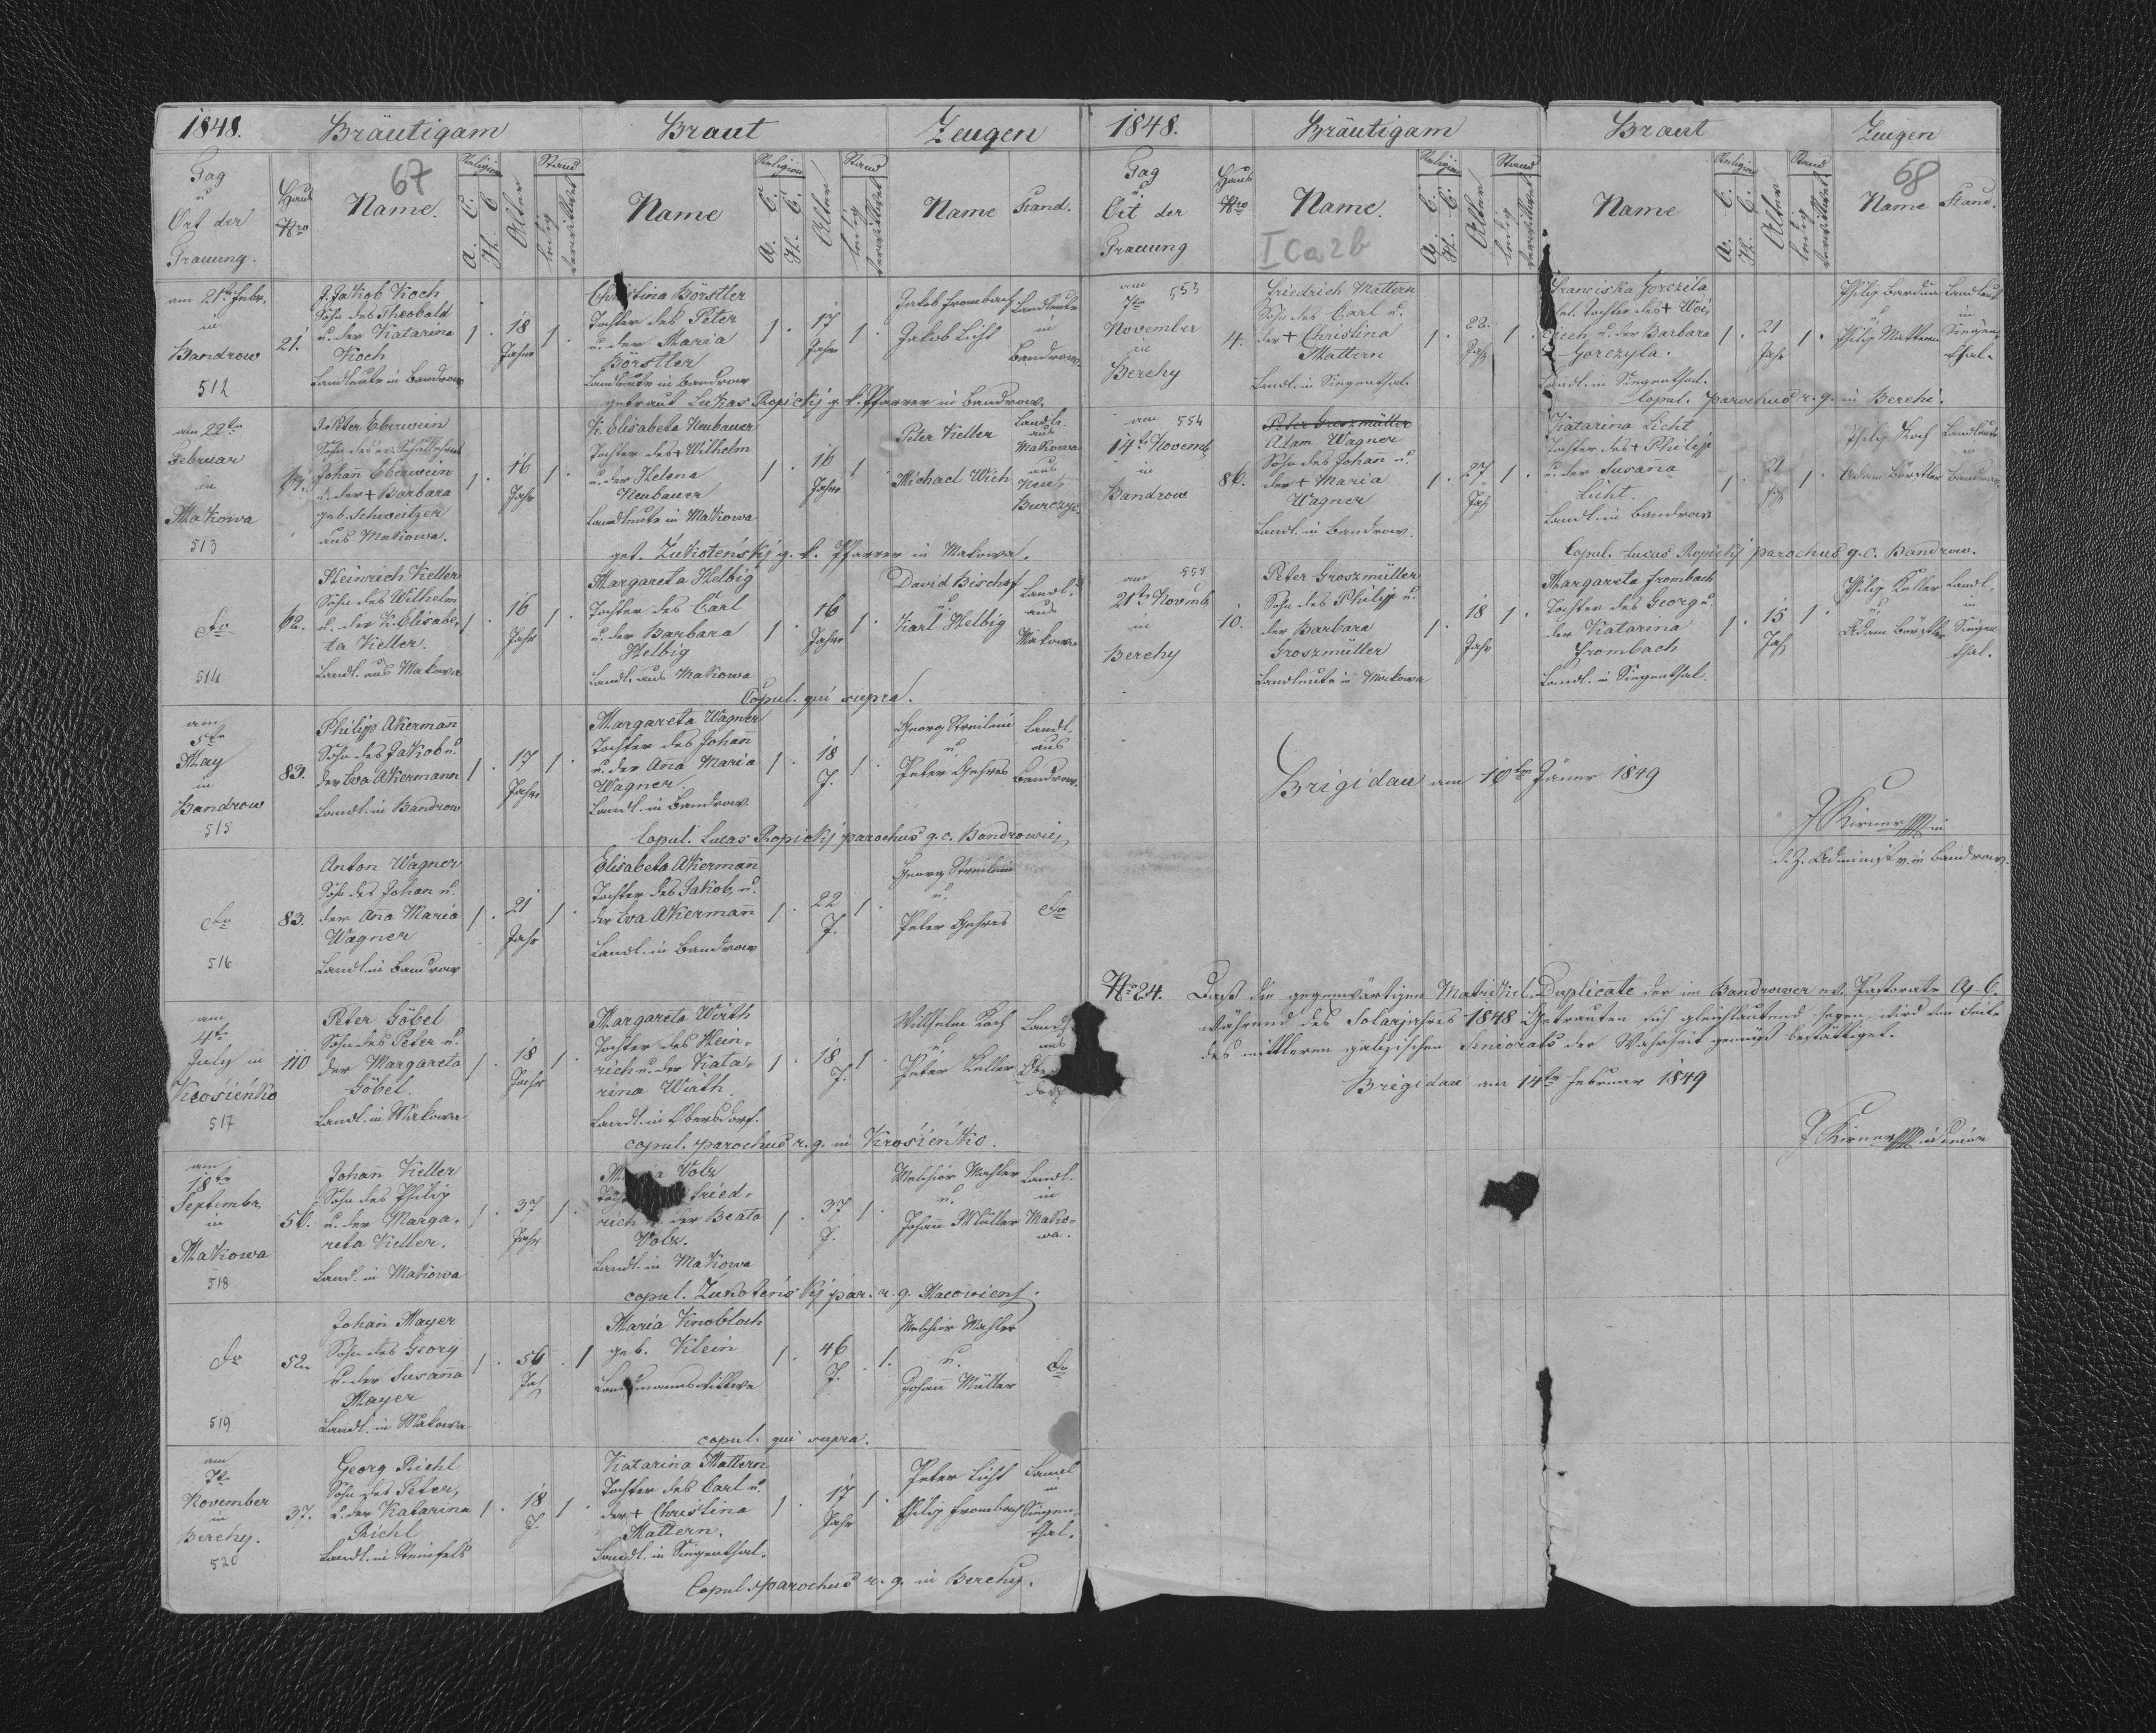 1848.
Bräutigam
Braut
Zeugen
Tag
u
Ort der
Trauung.
Haus
Nro
67
Name.
Religion
A. C.
H. C.
Alter
Stand
ledig
verwittwet
Name
Religion
A. C.
H. C.
Alter
Stand
ledig
verwittwet
Name
Stand.
am 21ten Febr.
in
Bandrow
512
21.
J. Jakob Koch
Sohn des Theobald
u. der Katarina
Koch
Landleute in Bandrow
1.
18
Jahre
1.
Christina Börstler
Tochter des Peter
u. der Maria
Börstler
Landleute in Bandrow
1.
17
Jahre
1.
Jakob Frombach
Jakob Licht
Landleute
in
Bandrow.
getraut Lukas Ropickij g. k. Pfarrer in Bandrow.
am 22ten
Februar
in
Makowa
513
J. Peter Eberwein
Sohn des ev. Schullehrers
Johann Eberwein
u. der + Barbara
geb. Schweitzer
aus Makowa.
1.
16
Jahr
1.
K. Elisabeta Neubauer
Tochter des + Wilhelm
u. der Helena
Neubauer
Landleute in Makowa
1.
16
Jahre
1
Peter Keller
Michael Wich
Landlt.
aus
Makowa
aus
Neu
Burczyc.
get. Zukoteńskij g. k. Pfarrer in Makowa.
do
514
62.
Heinrich Keller
Sohn des Wilhelm
u. der K. Elisabe,
ta Keller.
Landl. aus Makowa
1.
16
Jahr
1.
Margareta Helbig
Tochter des Carl
u. der Barbara
Helbig
Landl. aus Makowa
1.
16
Jahre
1.
David Bischof
u.
Karl Helbig
Landl.
aus
Makowa
Copul. qui supra.
am
5te
May
in
Bandrow
515
83.
Philipp Akerman
Sohn des Jakob u.
der Eva Akermann
Landl. in Bandrow
1.
17
Jahre
1.
Margareta Wagner
Tochter des Johann
u. der Anna Maria
Wagner.
Landl. in Bandrow
1.
18
J.
1.
Georg Streilein
u
Peter Gehres
Landl.
aus
Bandrow.
Copul. Lucas Ropickij parochus g. c. Bandrowień
do
516
83.
Anton Wagner
Sohn des Johan u.
der Anna Maria
Wagner
Landl. in Bandrow
1.
21
Jahr
1.
Elisabeta Akerman
Tochter des Jakob u.
der Eva Akermann
Landl. in Bandrow
1.
22
J.
1.
Georg Streilein
u.
Peter Gehres
do
am
4te
July in
Krosienko
517
110
Peter Göbel
Sohn des Peter u.
der Margareta
Göbel.
Landl. in Makowa
1.
18
Jahr
1.
Margareta Wirth
Tochter des Hein,
rich u. der Kata,
rina Wirth
Landl. in Obersdorf.
1.
18
J.
1.
Wilhelm Koch
u.
Peter Keller
Landl.
aus
Ober
dorf
copul. parochus r. g. in Krosienko.
am
18te
Septembr.
in
Makowa
518
56.
Johann Keller
Sohn des Philip
u. der Marga,
reta Keller.
Landl. in Makowa
1.
37
Jahr
1.
Volz
Fried,
rich u. der Beata
Volz.
Landl. in Makowa
1.
37
J.
1.
Melchior Mahler
u.
Johan Müller
Landl.
in
Mako=
wa.
copul. Zukoteńskij par. r. g. Macowiens.
do
519
52.
Johan Mayer
Sohn des Georg
u. der Susanna
Mayer
Landl. in Makowa
1.
56
Jah
1
Maria Knobloch
geb. Klein
Landmannswittwe
1.
46
J.
1.
Melchior Mahler
u.
Johann Müller
do
copul. qui supra.
am
7te
November
in
Berehy.
520
37.
Georg Richl
Sohn des Peter,
u. der Katarina
Richl
Landl. in Steinfels
1.
18
J.
1.
Katarina Mattern
Tochter des Carl u.
der + Christina
Mattern.
Landl. in Siegenthal.
1.
17
Jahr
1.
Peter Licht
Philip Frombach
Landl
in
Siegen,
thal.
Copul. parochus r. g. in Berehy.
1848.
Bräutigam
Braut
Zeugen
Tag
u.
Ort der
Trauung
Haus
Nro
Name.
I Ca 2b
Religion
A. C.
H. C.
Alter
Stand
ledig
verwittwet
Name
Religion
A. C.
H. C.
Alter
Stand
ledig
verwittwet
68
Name
Stand.
am
7te
553
November
in
Berehy
4.
Friedrich Mattern
Sohn des Carl u.
der + Christina
Mattern
Landl. in Siegenthal.
1.
22.
Jah
1.
Franciska Gorczila
Tochter des + Woi,
ciech u. der Barbara
Gorczyla.
Landl. in Siegenthal.
1.
21
Jahr
1.
Philip Mattern
Landleut
in
Siegen,
thal.
Copul. parochus r. g. in Berehi.
am
554
14te Novemb.
in
Bandrow
86.
Peter Groszmüller
Adam Wagner
Sohn des Johann u.
der + Maria
Wagner
Landl. in Bandrow.
1.
27
Jah
1.
Katarina Licht
Tochter des + Philipp
u. der Susanna
Licht.
Landl. in Bandrow
1.
21
Jah
1.
Philip Koch
Adam Börstler
Landleute
in
Bandrow
Copul. Lucas Ropickij parochus g. c. Bandrow.
am
555
21te Novemb.
in
Berehy
10.
Peter Groszmüller
Sohn des Philipp u.
der Barbara
Groszmüller
Landleute in Makowa
1.
18
Jahr
1.
Margareta Frombach
Tochter des Georg u.
der Katarina
Frombach
Landl. in Siegenthal.
1.
15
Jah
1.
Philip Keller
u
Adam Börstler
Landl,
in
Siegen
thal.
Brigidau am 10ten Jäner 1849
J Kirner
d. z. Administr. in Bandrow.
No 24. Daß die gegenwärtigen Matrikel-Duplicate der im Bandrower ev. Pastorate A. C.
während des Solarjahres 1848 Getrauten sich gleichlautend seyen, wird von Seite
des mittleren galizischen Seniorats der Wahrheit gemäß bestättiget.
Brigidau am 14te Februar 1849
J Kirner
Senior